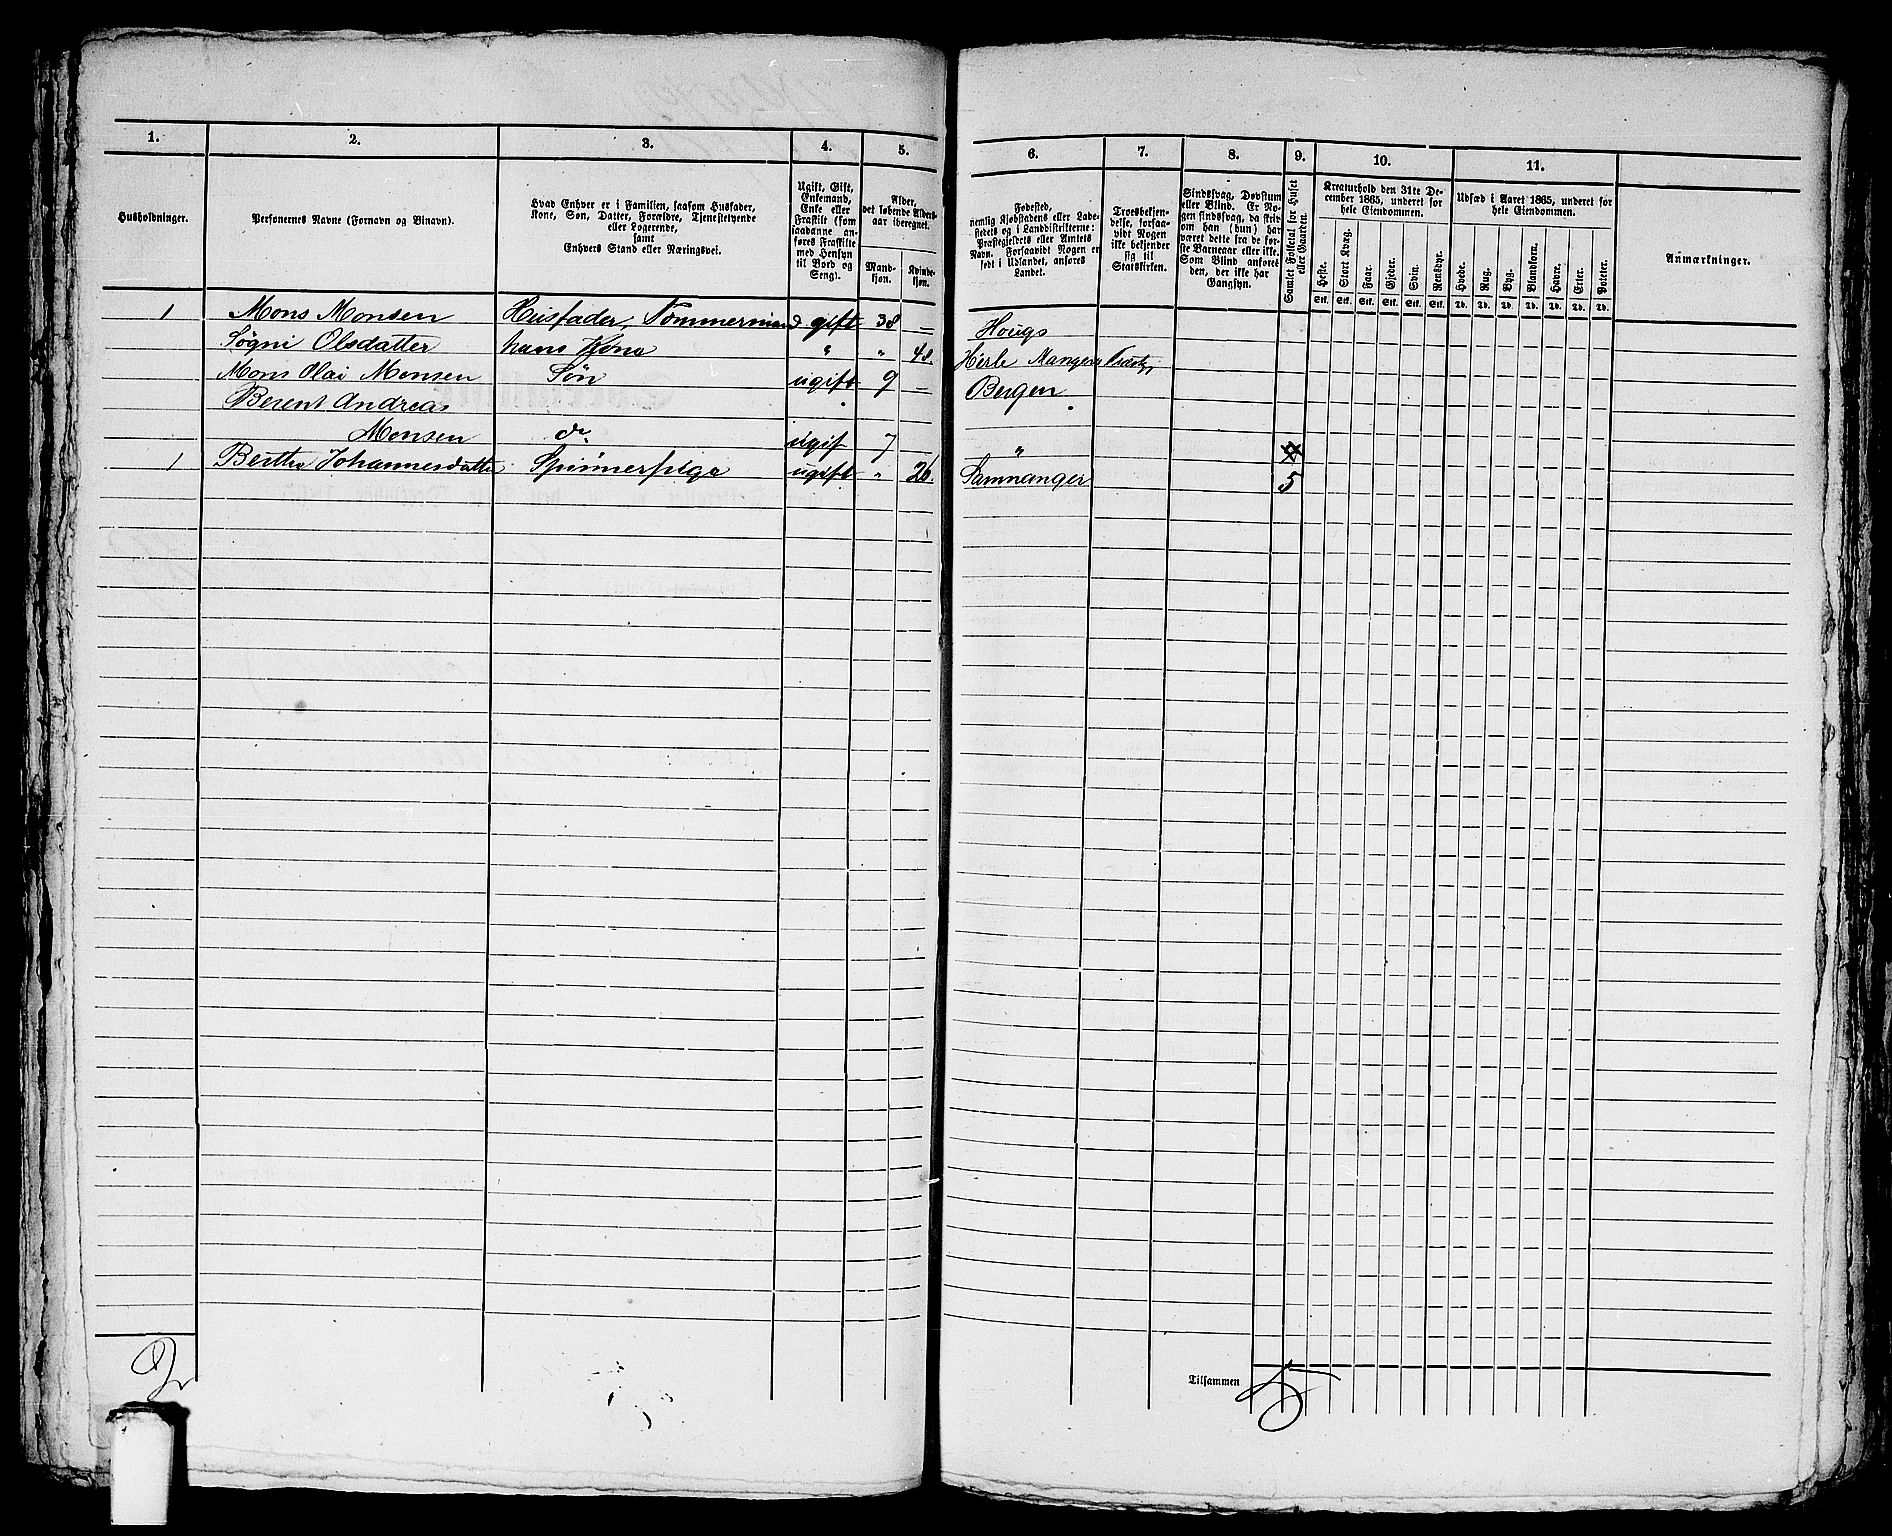 1. 2. 3. 4. 5. 6. 7. 8. 9. 10. 11.
Husholdninger.
Personernes Navne (Fornavn og Binavn).
Hvad Enhver er i Familien, saasom Husfader,
Kone, Søn, Datter, Forældre, Tjenestetyende
eller Logerende,
samt
Enhvers Stand eller Næringsvei.
Ugift, Gift,
Enkemand,
Enke eller
Fraskilt (som
saadanne an-
føres Fraskilte
med Hensyn
til Bord og
Seng).
Alder,
det løbende Alders-
aar iberegnet.
Mand-
kjøn.
Kvinde-
kjøn.
Fødested,
nemlig Kjøbstadens eller Lade-
stedets og i Landdistrikterne:
Præstegjeldets eller Amtets
Navn. Forsaavidt Nogen er
født i Udlandet, anføres
Landet.
Troesbekjen-
delse, forsaa-
vidt Nogen
ikke bekjender
sig til
Statskirken.
Sindssvag, Døvstum
eller Blind. Er No-
gen sindssvag, da skriv
om han (hun) har
været dette fra de før-
ste Barneaar eller ikke.
Som Blind anføres
den, der ikke har
Gangsyn.
Samlet Folketal for Huset
eller Gaarden.
Kreaturhold den 31te De-
cember 1865, underet for
hele Eiendommen.
Heste. Stort Kvæg. Faar. Gjeder. Svin. Rensdyr.
Stk. Stk. Stk. Stk. Stk. Stk.
Udsæd i Aaret 1865, underet for
hele Eiendommen.
Hvede. Rug. Byg. Blandkorn. Havre. Erter. Poteter.
Td. Td. Td. Td. Td. Td. Td.
Anmærkninger.
1 Mons Monsen Husfader, Tømmermand gift 38 — Hougs
Søgni Olsdatter hans Kone " " 48. Herle Mangers
Mons Olai Monsen Søn ugift 9 — Bergen
Berent Andreas
Monsen do ugif 7 "
1 Berthe Johannesdatter Spinnerpige ugift " 26. Samnanger 5
2
Tilsammen 5